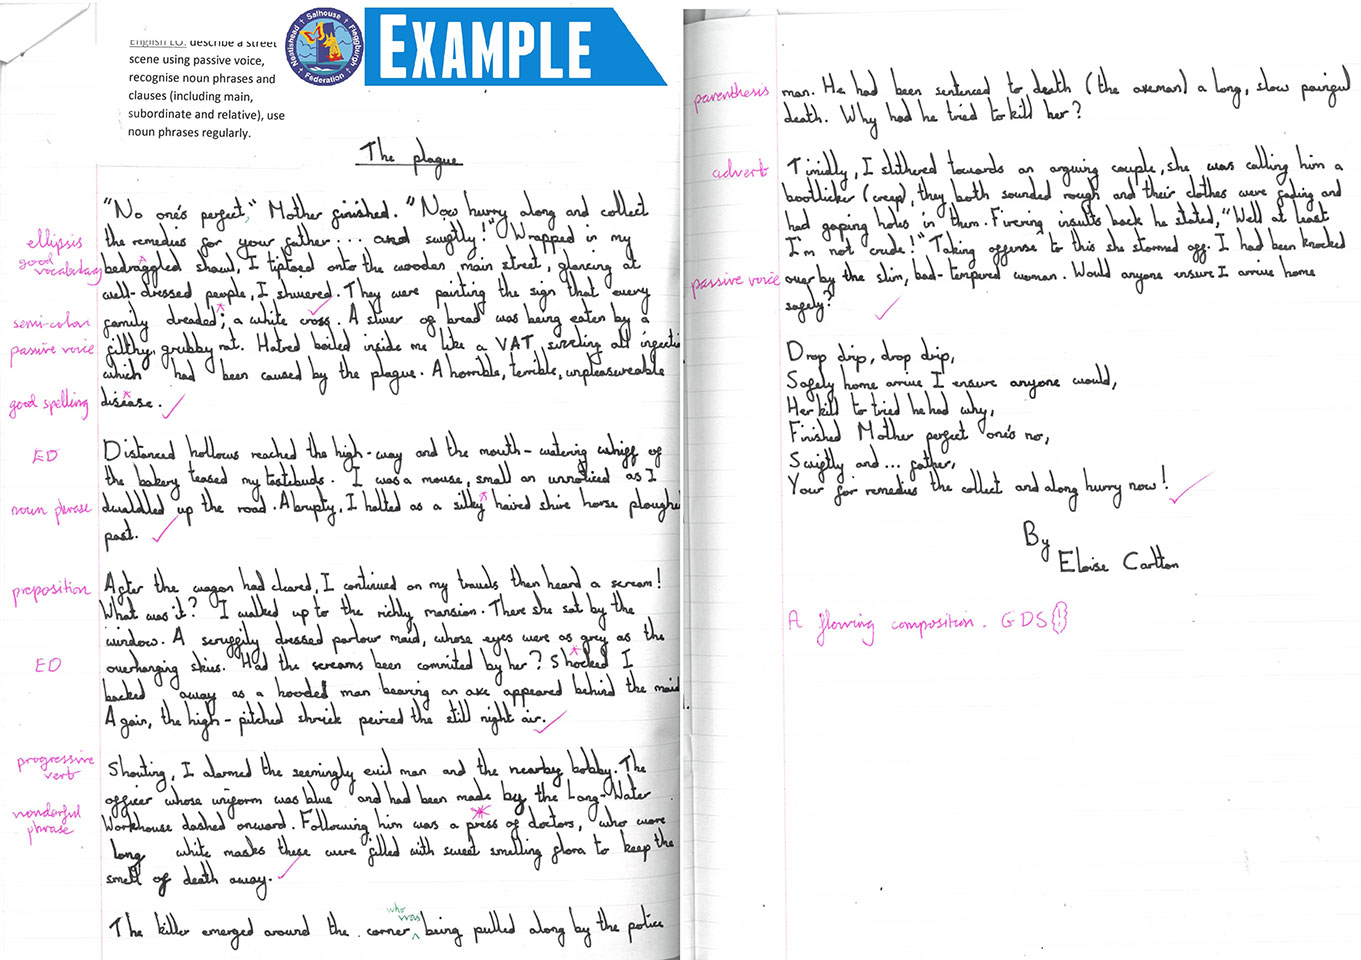 English L.O: describe a street
scene using passive voice,
recognise noun phrases and
clauses (including main,
subordinate and relative), use
noun phrases regularly.
Neatishead Salhouse Fleggburgh
Federation
EXAMPLE
The plague
"No one's perfect," Mother finished. "Now hurry along and collect
ellipsis
the remedies for your father... and swiftly!" Wrapped in my
good
vocabulary
bedraggled shawl, I tiptoed onto the wooden main street, glancing at
well-dressed people, I shivered. They were painting the sign that every
semi-colon
family dreaded; a white cross. A sliver of bread was being eaten by a
passive voice
filthy, grubby rat. Hatred boiled inside me like a VAT, swirling all
which had been caused by the plague. A horrible, terrible, unpleasureable
good spelling
disease.
ED
Distanced hollows reached the high-way and the mouth-watering whiff of
the bakery teased my tastebuds. I was a mouse, small an unnoticed as I
noun phrase
dwaldled up the road. Abrupty, I halted as a silky haired shire horse ploughe
past.
preposition
After the wagon had cleared, I continued on my travels then heard a scream!
What was it? I walked up to the richly mansion. There she sat by the
window. A scruggily dressed parlour maid, whose eyes were as grey as the
ED
overhanging skies. Had the screams been commited by her? Shocked I
backed away as a hooded man bearing an axe appeared behind the maid
Again, the high-pitched shriek peirced the still night air.
progressive
verb
Shouting, I alarmed the seemingly evil man and the nearby bobby. The
officer whose uniform was blue and had been made by the Long-Water
wonderful
phrase
Workhouse dashed onward. Following him was a press of doctors, who wore
long white masks these were filled with sweet smelling flora to keep the
smell of death away.
who
was
The killer emerged around the corner being pulled along by the police
parenthesis
man. He had been sentenced to death (the axeman) a long, slow painful
death. Why had he tried to kill her?
advert
Timidly, I slithered towards an arguing couple, she was calling him a
bootlicker (creep), they both sounded rough and their clothes were fading and
had gaping holes in them. Firering insults back he stated, "Well at least
I'm not crude!" Taking offense to this she stormed off. I had been knocked
passive voice
over by the slim, bad-tempered woman. Would anyone ensure I arrive home
safely?
Drop drip, drop drip,
Safely home arrive I ensure anyone would,
Her kill to tried he had why,
Finished Mother perfect one's no,
Swiftly and... father,
Your for remedies the collect and along hurry now!
By
Eloise Carlton
A flowing composition. GDS